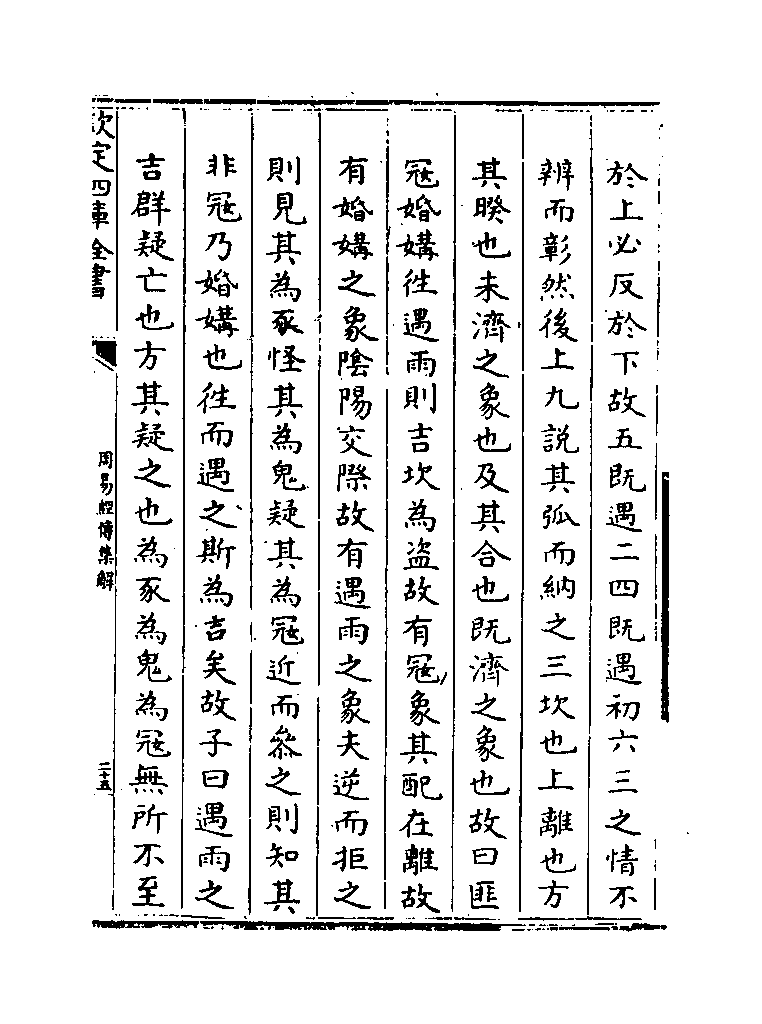 於上必反於下故五既遇二四既遇初六三之情不
辨而彰然後上九說其弧而納之三坎也上離也方
其暌也未濟之象也及其合也既濟之象也故曰匪
寇婚媾徃遇雨則吉坎為盗故有寇象其配在離故
有婚媾之象隂陽交際故有遇雨之象夫逆而拒之
則見其為豕怪其為鬼疑其為寇近而叅之則知其
非寇乃婚媾也徃而遇之斯為吉矣故子曰遇雨之
吉群疑亡也方其疑之也為豕為鬼為寇無所不至
欽定四庫全書
周易經傳集解
二十五